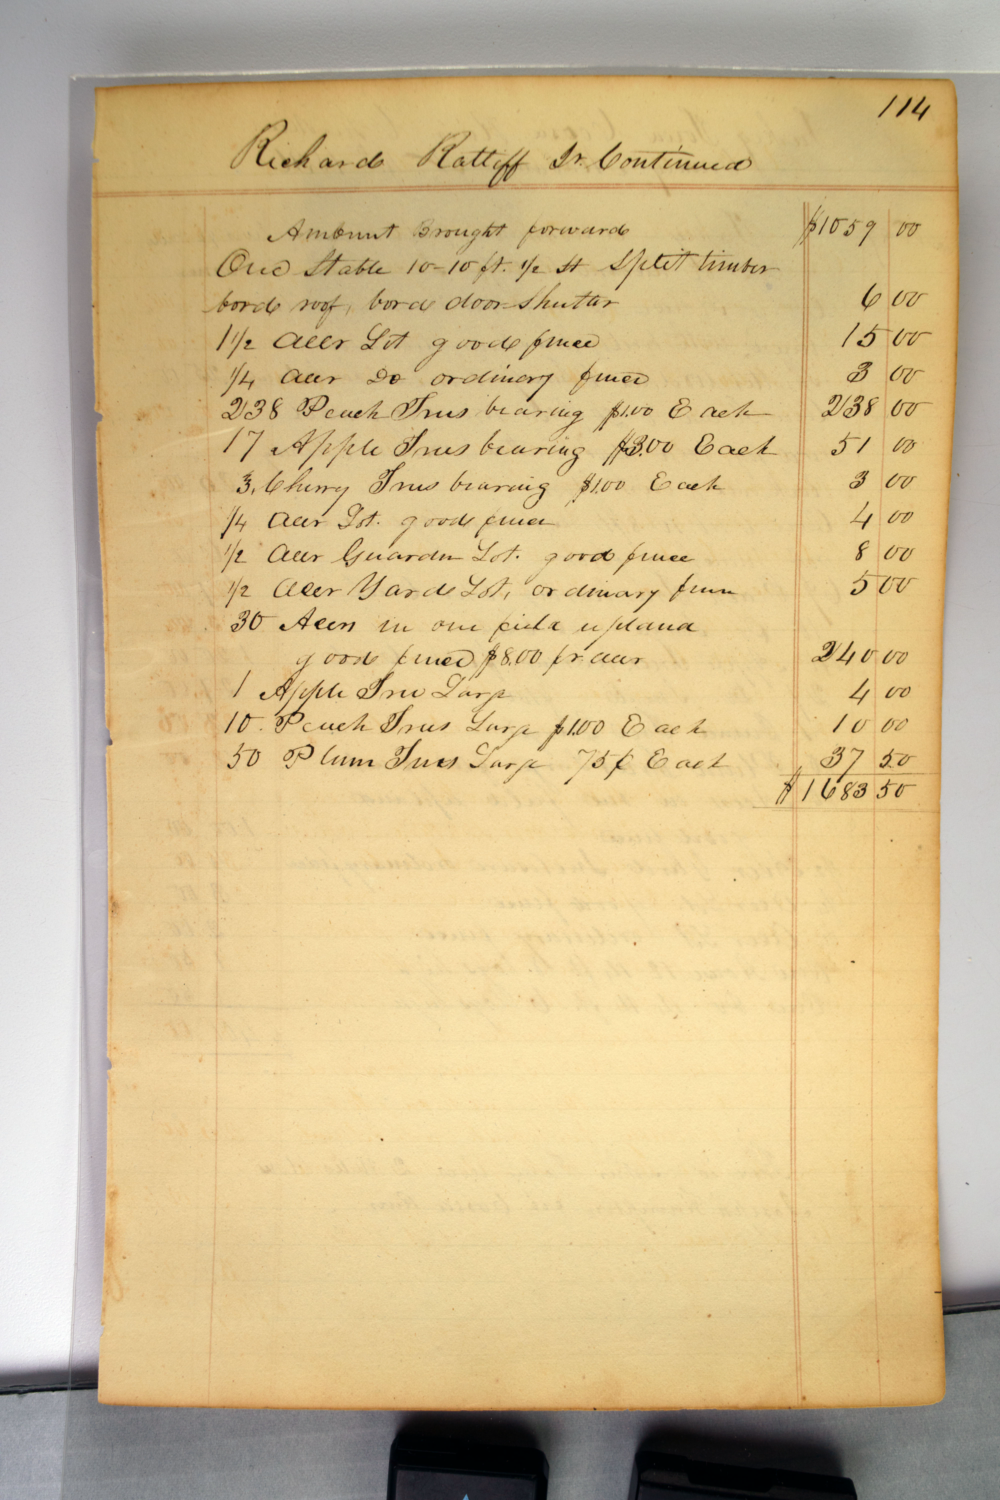 114
Richard Ratliff Dr. Continued
Amount Brought forward $1059 00
One Stable 10-10 ft. 1/2 st Split timber
bord roof, bord door-Shutter 6 00
1 1/2 Acer Lot good fence 15 00
1/4 Acer Do ordinary fence 3 00
238 Peach Trees bearing $1.00 Each 238 00
17 Apple Trees bearing $3.00 Each 51 00
3. Cherry Trees bearing $1.00 Each 3 00
1/4 Acer Lot. good fence 4 00
1/2 Acer Guarden Lot. good fence 8 00
1/2 Acer Yard Lot, ordinary fence 5 00
30 Acers in one field upland
good fence $8.00 pr acer 240 00
1 Apple Tree Large 4 00
10. Peach Trees Large $1.00 Each 10 00
50 Plum Trees Large 75¢ Each 37 50
$1683 50